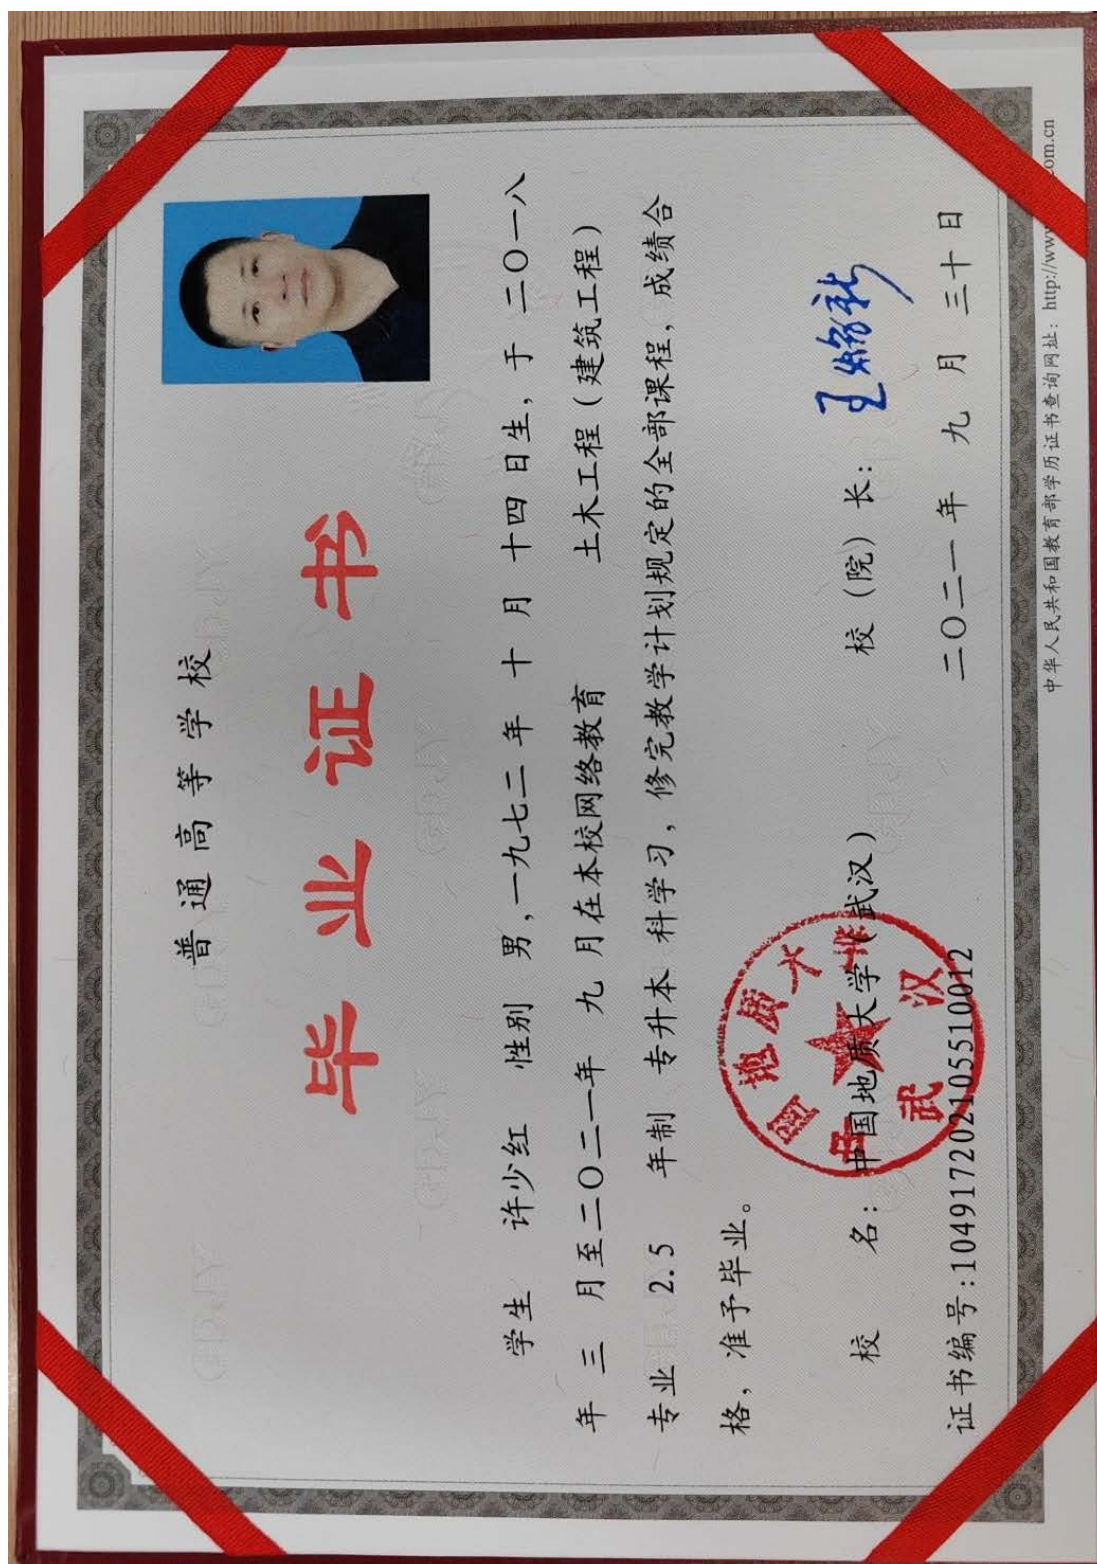 普通高等学校
毕业证书
学生 许少红 性别 男,一九七二年 十 月 十四 日生，于 二〇一八
年 三 月至二〇二一年 九 月在本校网络教育 土木工程（建筑工程）
专业 2.5 年制 专升本 科学习，修完教学计划规定的全部课程，成绩合
格，准予毕业。
校 名：中国地质大学（武汉） 校（院）长：
证书编号:104917202105510012 二〇二一 年 九 月 三十 日
中华人民共和国教育部学历证书查询网址：http://www com.cn